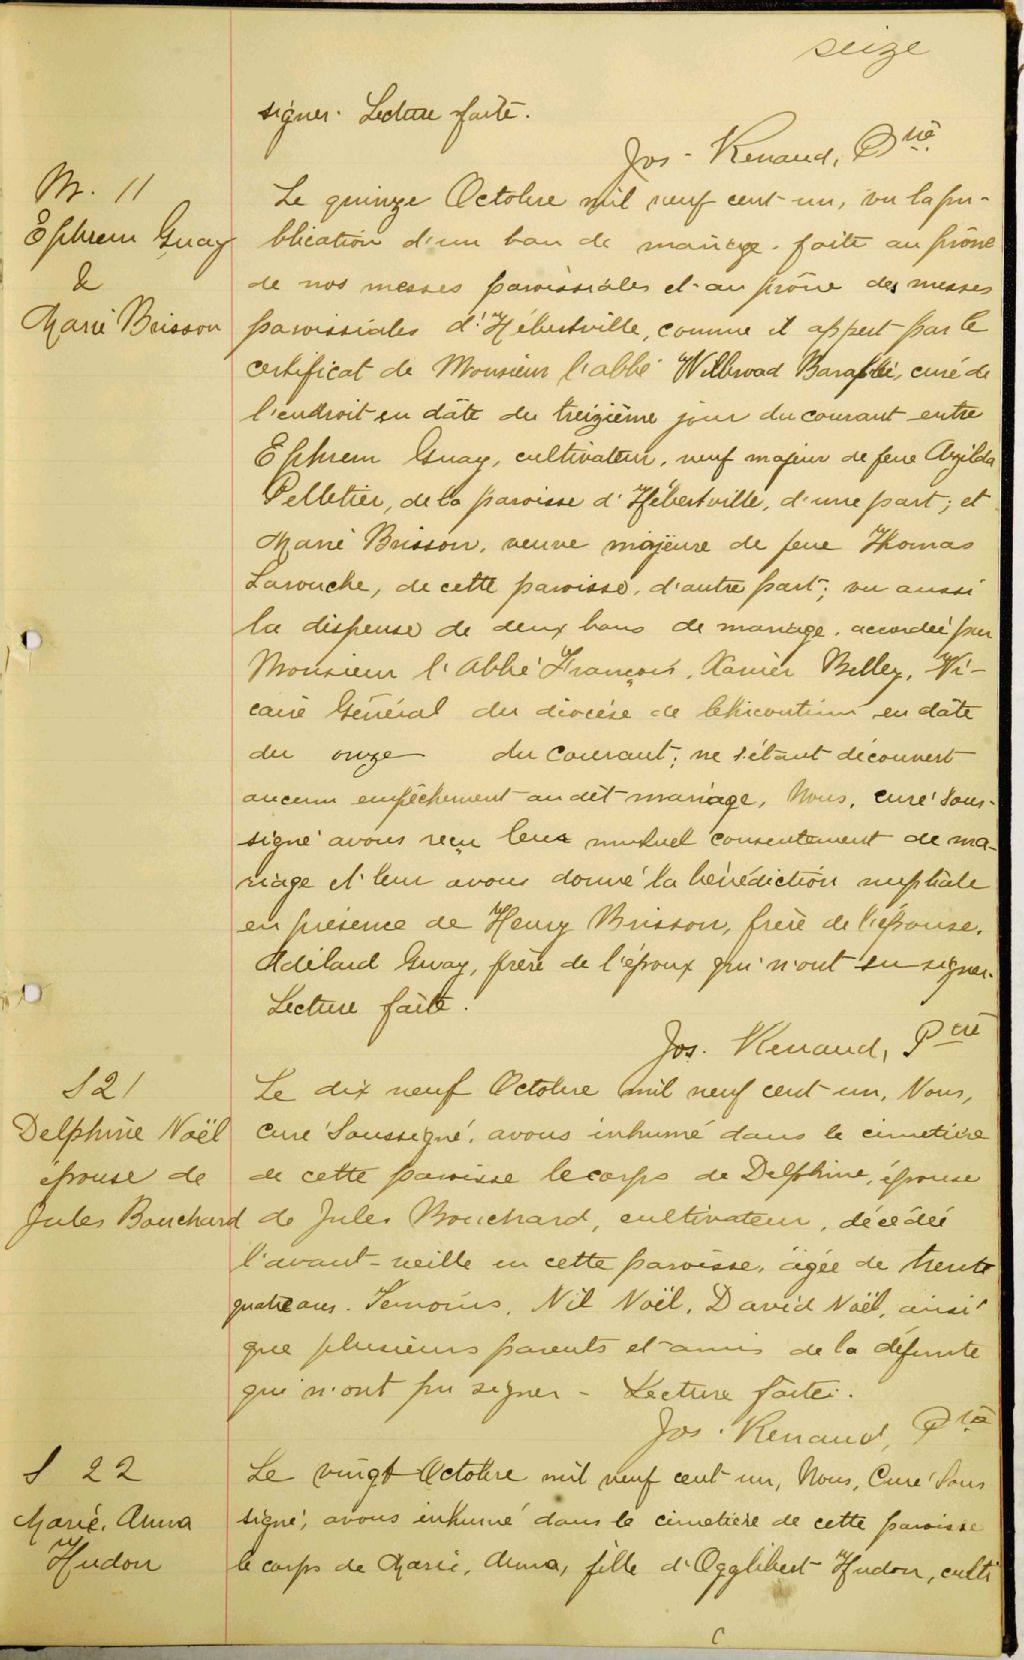 seize
signer. Lecture faite.
Jos. Renaud, Ptre
M. 11
Ephrem Guay
&
Marie Brisson
Le quinze Octobre mil neuf cent-un, vu la pu-
blication d'un ban de mariage faite au prône
de nos messes paroissiales et au prône des messes
paroissiales d'Hébertville, comme il appert par le
certificat de Monsieur l'abbé Wilbroad Barabbé, curé de
l'endroit en date du treizième jour du courant entre
Ephrem Guay, cultivateur, veuf majeur de feue Azilda
Pelletier, de la paroisse d'Hébertville, d'une part; et
Marie Brisson, veuve majeure de feue Thomas
Larouche, de cette paroisse, d'autre part; vu aussi
la dispense de deux bans de mariage, accordée par
Monsieur l'Abbé François, Xavier Belley, Vi-
caire Général du diocèse de Chicoutimi en date
du onze du courant; ne s'étant découvert
aucun empêchement au dit mariage, Nous, curé Sous-
signé avons reçu leur mutuel consentement de ma-
riage et leur avons donné la bénédiction nuptiale
en présence de Henry Brisson, frère de l'épouse,
Adélard Guay, frère de l'époux qui n'ont su signer.
Lecture faite.
Jos. Renaud, Ptre
S 21
Delphine Noël
épouse de
Jules Bouchard
Le dix neuf Octobre mil neuf cent-un, Nous,
curé Soussigné, avons inhumé dans le cimetière
de cette paroisse le corps de Delphine, épouse
de Jules Bouchard, cultivateur, décédée
l'avant-veille en cette paroisse, âgée de trente
quatre ans. Temoins, Nil Noël, David Noël, ainsi
que plusieurs parents et amis de la défunte
qui n'ont pu signer - Lecture faite.
Jos. Renaud, Ptre
S 22
Marie, Anna
Hudon
Le vingt Octobre mil neuf cent un, Nous, Curé Sous
signé, avons inhumé dans le cimetière de cette paroisse
le corps de Marie, Anna, fille d'Ogglibert Hudon, culti